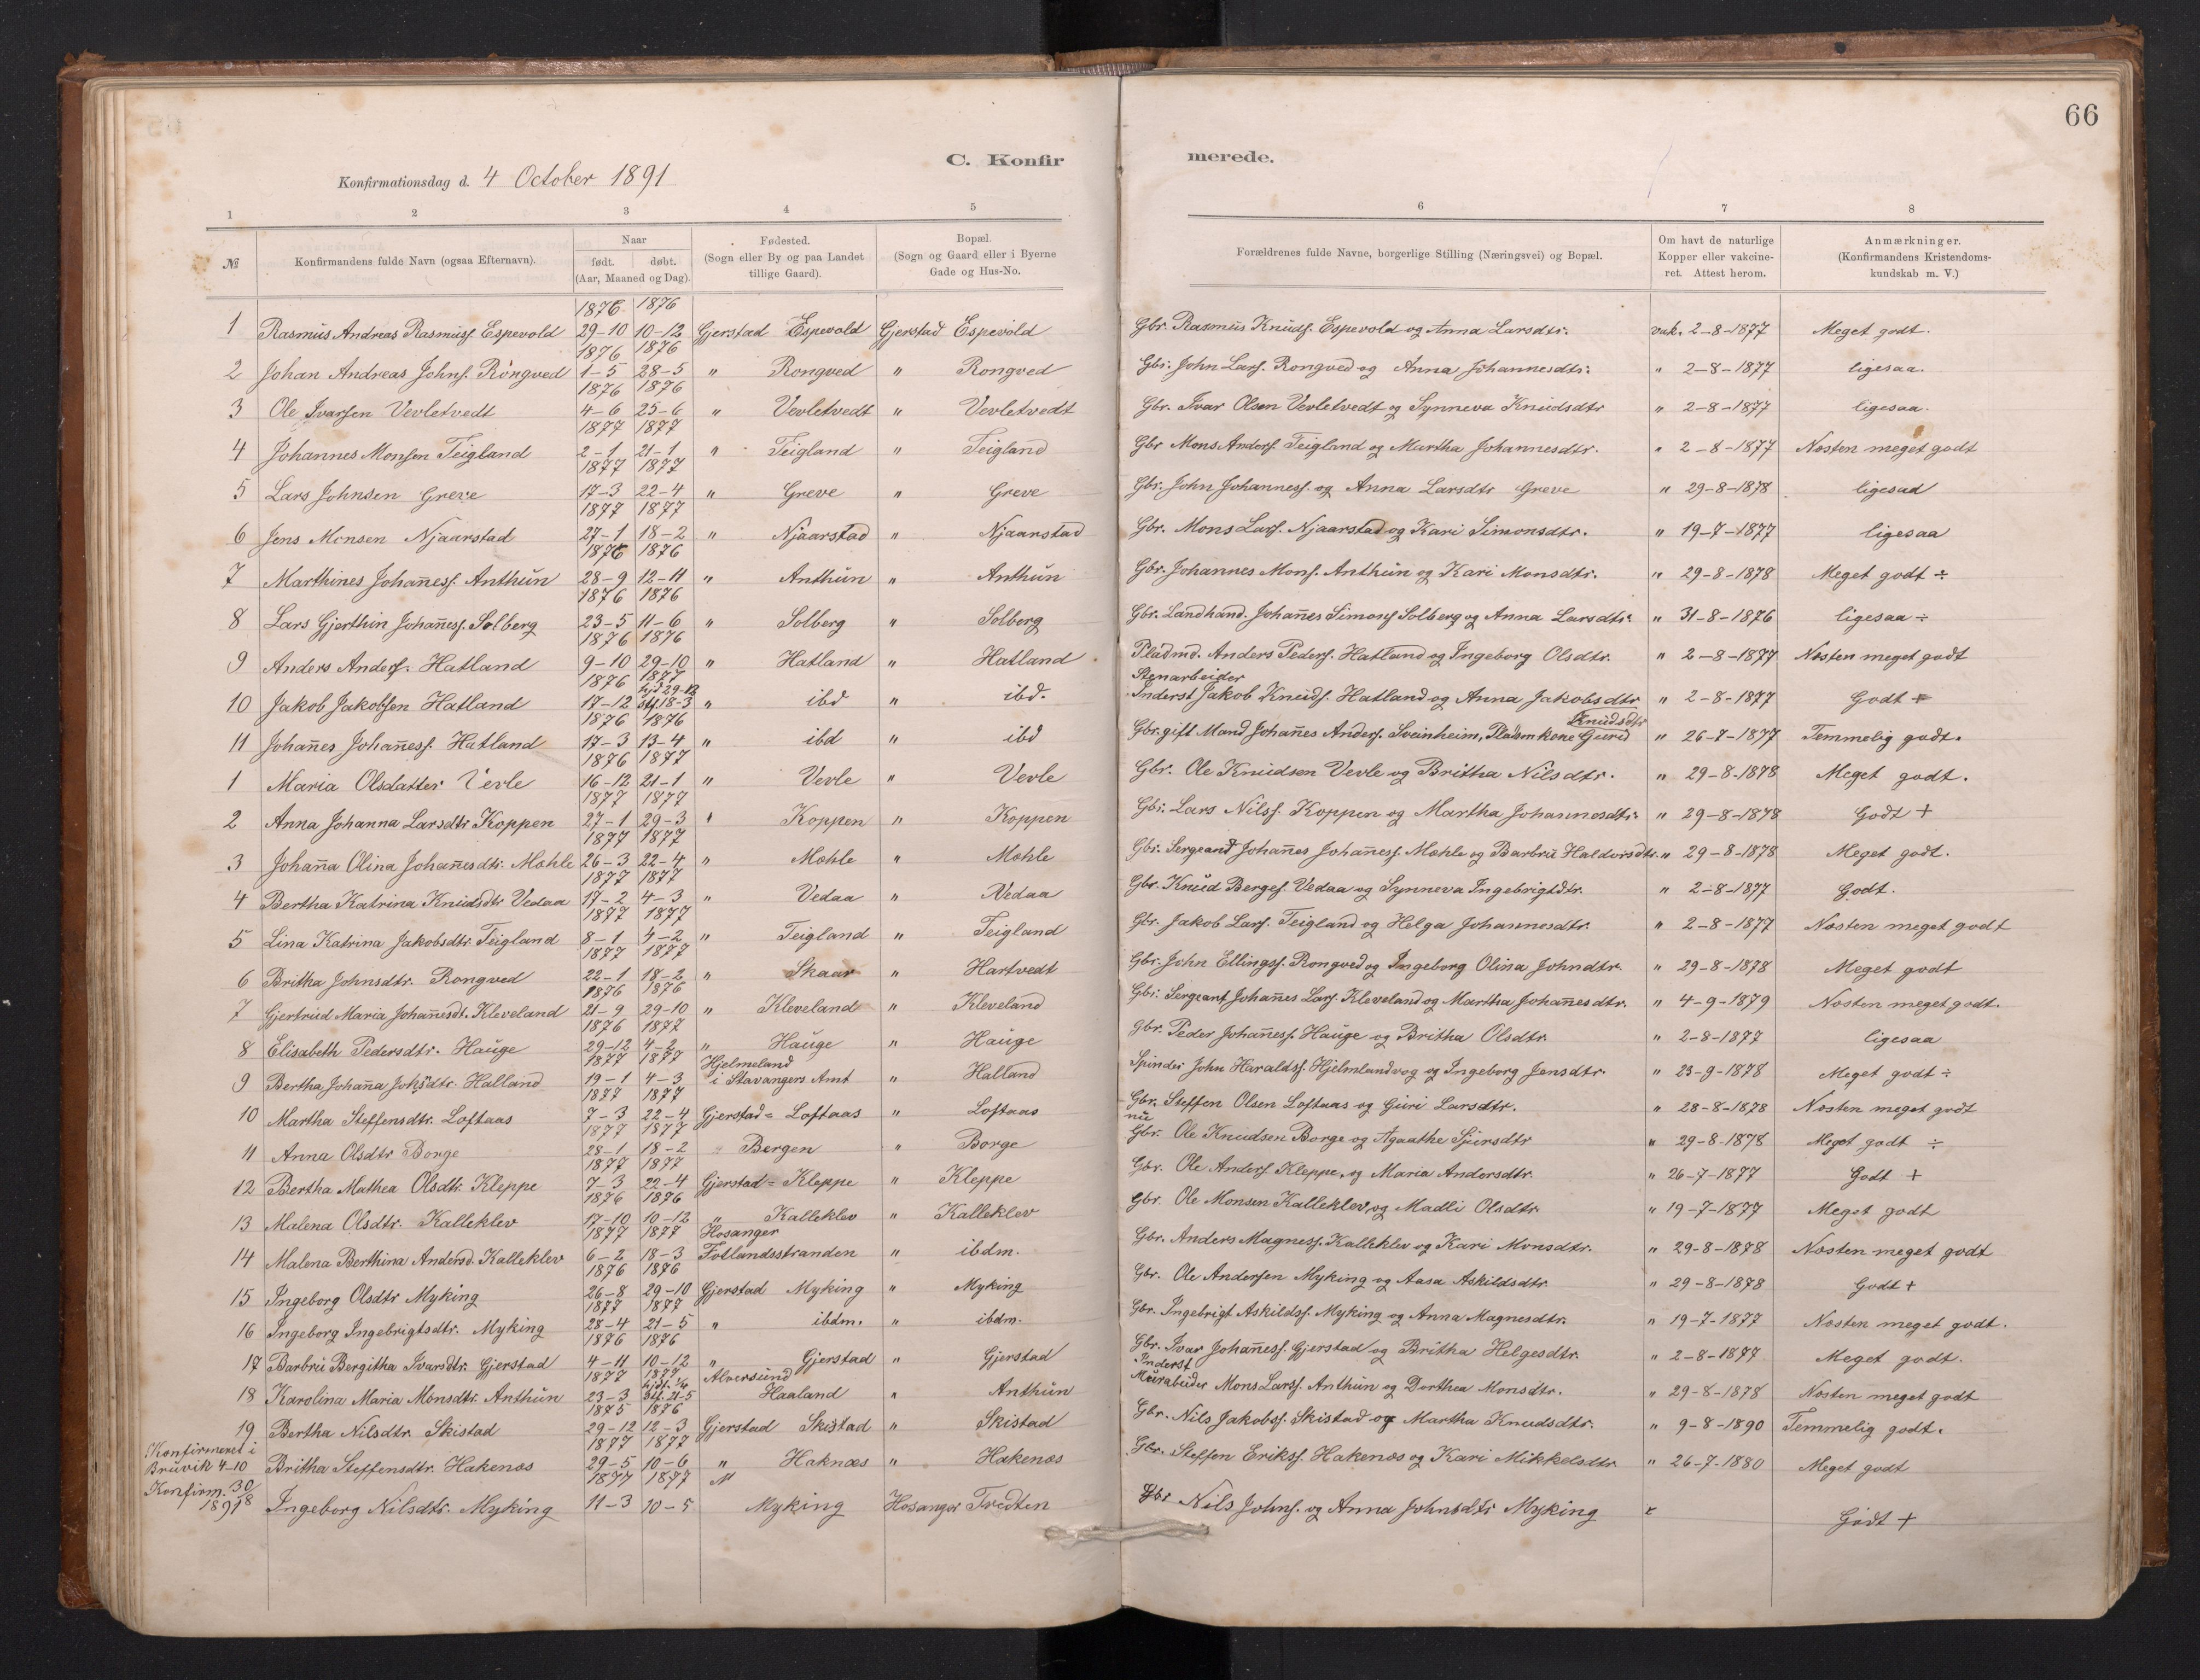 66
C. Konfirmerede.
Konfirmationsdag d. 4 October 1891
1 2 3 4 5 6 7 8
№ | Konfirmandens fulde Navn (ogsaa Efternavn). | Naar født. døbt. (Aar, Maaned og Dag). | Fødested. (Sogn eller By og paa Landet tillige Gaard). | Bopæl. (Sogn og Gaard eller i Byerne Gade og Hus-No. | Forældrenes fulde Navne, borgerlige Stilling (Næringsvei) og Bopæl. | Om havt de naturlige Kopper eller vakcineret. Attest herom. | Anmærkninger. (Konfirmandens Kristendomskundskab m. V.)
1 Rasmus Andreas Rasmuss. Espevold 1876 29-10 1876 10-12 Gjerstad Espevold Gjerstad Espevold Gbr. Rasmus Knuds. Espevold og Anna Larsdtr. vak. 2-8-1877 Meget godt.
2 Johan Andreas Johns. Röngved 1876 1-5 1876 28-5 " Rongved " Rongved Gbr. John Lars. Rongved og Anna Johannesdtr. " 2-8-1877 ligesaa.
3 Ole Ivarsen Vevletvedt 1876 4-6 1876 25-6 " Vevletvedt " Vevletvedt Gbr. Ivar Olsen Vevletvedt og Synneva Knudsdtr " 2-8-1877 ligesaa.
4 Johannes Monsen Teigland 1877 2-1 1877 21-1 " Teigland " Teigland Gbr Mons Anders. Teigland og Martha Johannesdtr. " 2-8-1877 Næsten meget godt
5 Lars Johnsen Greve 1877 17-3 1877 22-4 " Greve " Greve Gbr. John Johanness. og Anna Larsdtr Greve " 29-8-1878 ligesaa
6 Jens Monsen Njaarstad 1877 27-1 1877 18-2 " Njaarstad " Njaarstad Gbr. Mons Lars. Njaarstad og Kari Simonsdtr. " 19-7-1877 ligesaa
7 Marthines Johañess. Anthun 1876 28-9 1876 12-11 " Anthun " Anthun Gbr. Johannes Mons. Anthun og Kari Monsdtr. " 29-8-1878 Meget godt ÷
8 Lars Gjerthin Johañess. Solberg 1876 23-5 1876 11-6 " Solberg " Solberg Gbr. Landhand. Johañes Simons Solberg og Anna Larsdtr " 31-8-1876 ligesaa ÷
9 Anders Anders. Hatland 1876 9-10 1876 29-10 " Hatland " Hatland Pladsmd. Anders Peders. Hatland og Ingeborg Olsdtr. " 2-8-1877 Næsten meget godt
10 Jakob Jakobsen Hatland 1876 17-12 1877 hjd 29-12 stf 18-3 " ibd " ibd. Stenarbeider Inderst Jakob Knuds. Hatland og Anna Jakobsdtr " 2-8-1877 Godt +
11 Johañes Johañess. Hatland 1876 17-3 1876 13-4 " ibd " ibd Gbr. gift Mand Johañes Anders. Sveinheim, Pladsmkone Gurid Knudsdtr " 26-7-1877 Temmelig godt.
1 Maria Olsdatter Vevle 1876 16-12 1877 21-1 " Vevle " Vevle Gbr. Ole Knudsen Vevle og Britha Nilsdtr. " 29-8-1878 Meget godt.
2 Anna Johanna Larsdtr Koppen 1877 27-1 1877 29-3 " Koppen " Koppen Gbr. Lars Nilss. Koppen og Martha Johannesdtr. " 29-8-1878 Godt +
3 Johaña Olina Johañesdtr. Mæhle 1877 26-3 1877 22-4 " Mæhle " Mæhle Gbr. Sergeant Johañes Johañess. Mæhle og Barbru Haldorsdtr. " 29-8-1878 Meget godt.
4 Bertha Katrina Knudsdtr Vedaa 1877 17-2 1877 4-3 " Vedaa " Vedaa Gbr. Knud Berges. Vedaa og Synneva Ingebrigtdtr. " 2-8-1877 Godt.
5 Lina Katrina Jakobsdtr. Teigland 1877 8-1 1877 4-2 " Teigland " Teigland Gbr. Jakob Lars. Teigland og Helga Johannesdtr. " 2-8-1877 Næsten meget godt
6 Britha Johnsdtr. Rongved 1877 22-1 1877 18-2 " Skaar " Hartvedt Gbr. John Ellings. Rongved og Ingeborg Olina Johndtr. " 29-8-1878 Meget godt
7 Gjertrud Maria Johañesdt. Kleveland 1876 21-9 1876 29-10 " Kleveland " Kleveland Gbr. Sergeant Johañes Lars. Kleveland og Martha Johañesdtr. " 4-9-1879 Næsten meget godt.
8 Elisabeth Pedersdtr. Hauge 1876 29-12 1877 4-2 " Hauge " Hauge gbr. Peder Johañess. Hauge og Britha Olsdtr. " 2-8-1877 ligesaa
9 Bertha Johaña Johsdtr. Halland 1877 19-1 1877 4-3 Hjelmeland i Stavangers Amt " Halland Spinder John Haralds. Hjelmlandvog og Ingeborg Jensdtr. " 23-9-1878 Meget godt ÷
10 Martha Steffensdtr. Loftaas 1877 7-3 1877 22-4 Gjerstad = Loftaas " Loftaas Gbr. Steffen Olsen Loftaas og Guri Larsdtr. " 28-8-1878 Næsten meget godt
11 Anna Olsdtr Borge 1877 28-1 1877 18-2 " Bergen " Borge nu Gbr. Ole Knudsen Borge og Agaathe Sjursdtr " 29-8-1878 Meget godt ÷
12 Bertha Mathea Olsdtr. Kleppe 1877 7-3 1877 22-4 Gjerstad = Kleppe " Kleppe Gbr. Ole Anders. Kleppe, og Maria Andersdtr. " 26-7-1877 Godt +
13 Malena Olsdtr. Kalleklev 1876 17-10 1876 10-12 " Kalleklev " Kalleklev Gbr. Ole Monsen Kalleklev, og Madli Olsdtr " 19-7-1877 Meget godt
14 Malena Berthina Andersd. Kalleklev 1877 6-2 1877 18-3 Hosanger Fotlandsstranden " ibdm. Gbr. Anders Magness. Kalleklev og Kari Monsdtr. " 29-8-1878 Næsten meget godt
15 Ingeborg Olsdtr Myking 1876 26-8 1876 29-10 Gjerstad Myking " Myking Gbr. Ole Andersen Myking og Aasa Askildsdtr. " 29-8-1878 Godt +
16 Ingeborg Ingebrigtsdtr. Myking 1877 28-4 1877 21-5 " ibdm. " ibdm. Gbr. Ingebrigt Askildss. Myking og Anna Magnesdtr. " 19-7-1877 Næsten meget godt.
17 Barbru Bergitha Ivarsdtr. Gjerstad 1876 4-11 1876 10-12 " Gjerstad " Gjerstad Gbr. Ivar Johañess. Gjerstad og Britha Helgesdtr. " 2-8-1877 Meget godt.
18 Karolina Maria Monsdtr. Anthun 1877 23-3 1877 hjdt. 1/4 stf. 21-5 Alversund Haaland " Anthun Inderst Murabeider Mons Larss. Anthun og Dorthea Monsdtr. " 29-8-1878 Næsten meget godt
19 Bertha Nilsdtr. Skistad 1875 29-12 1876 12-3 Gjerstad Skistad " Skistad Gbr. Nils Jakobss. Skistad og Martha Knudsdtr. " 9-8-1890 Temmelig godt.
Konfirmeret i Bruvik 4-10 Britha Steffensdtr. Hakenæs 1877 29-5 1877 10-6 " Haknæs " Hakenæs Gbr. Steffen Erikss. Hakenæs og Kari Mikkelsdtr " 26-7-1880 Meget godt
Konfirm. 30/8 1891 Ingeborg Nilsdtr. Myking 1877 11-3 1877 10-5 " Myking Hosanger Tvedten Gbr Nils Johns. og Anna Johnsdtr Myking Godt +